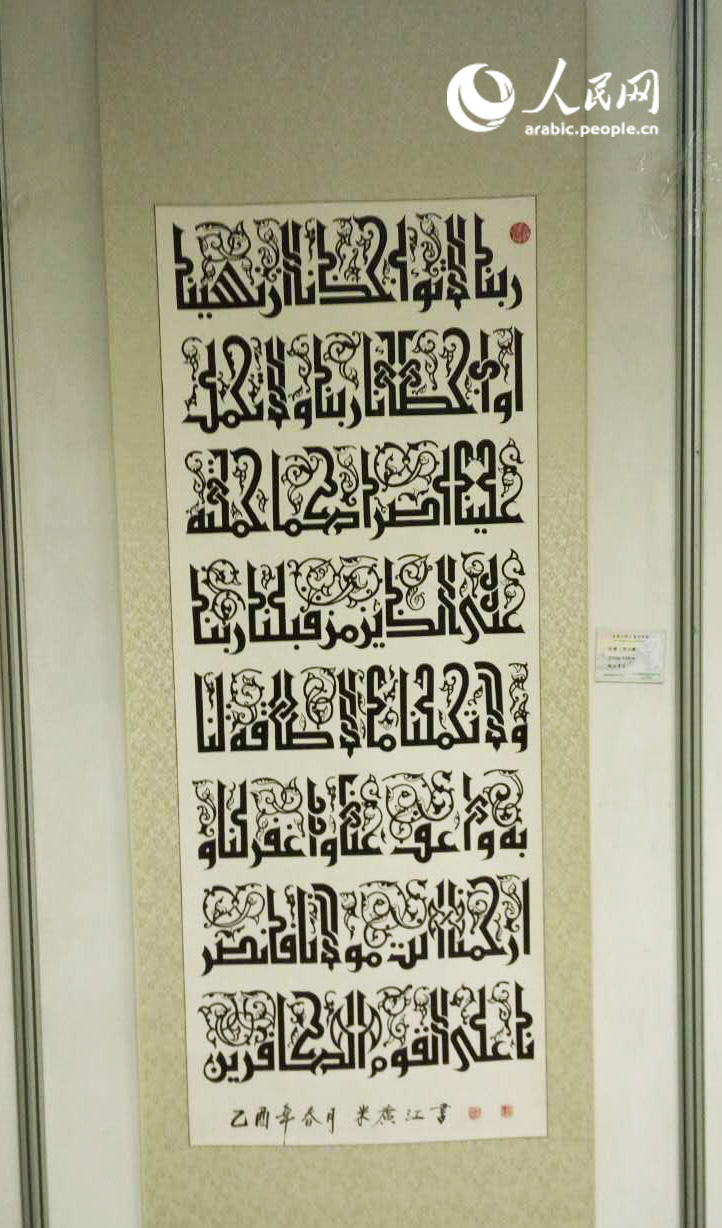 人民网
arabic.people.cn
ربنا لا تواخذنا ان نسينا
او اخطانا ربنا ولا تحمل
علينا اصرا كما حملته
على الذين من قبلنا ربنا
ولا تحملنا ما لا طاقة لنا
به واعف عنا واغفر لنا و
ارحمنا انت مولانا فانصر
نا على القوم الكافرين
乙酉年春月 米廣江書